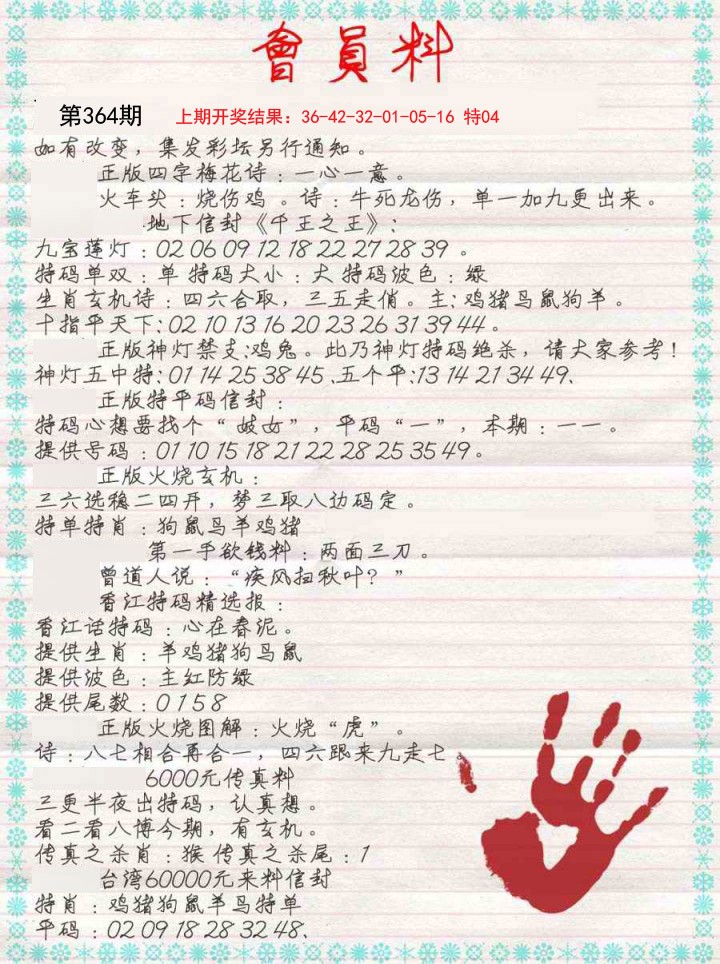 會員料
第364期 上期开奖结果：36-42-32-01-05-16 特04
如有改变，集发彩坛另行通知。
正版四字梅花诗：一心一意。
火车头：烧伤鸡 。诗：牛死龙伤，单一加九更出来。
地下信封《千王之王》：
九宝莲灯：02 06 09 12 18 22 27 28 39 。
特码单双：单 特码大小：大 特码波色：绿
生肖玄机诗：四六合取，三五走俏。主：鸡猪马鼠狗羊。
十指平天下：02 10 13 16 20 23 26 31 39 44。
正版神灯禁支：鸡兔。此乃神灯特码绝杀，请大家参考！
神灯五中特：01 14 25 38 45 .五个平：13 14 21 34 49.
正版特平码信封：
特码心想要找个“ 妓女”，平码“一”，本期：一一。
提供号码：01 10 15 18 21 22 28 25 35 49。
正版火烧玄机：
三六选稳二四开，梦三取八边码定。
特单特肖：狗鼠马羊鸡猪
第一手欲钱料：两面三刀。
曾道人说：“疾风扫秋叶？”
香江特码精选报：
香江话特码：心在春泥。
提供生肖：羊鸡猪狗马鼠
提供波色：主红防绿
提供尾数：0 1 5 8
正版火烧图解：火烧“虎”。
诗：八七相合再合一，四六跟来九走七
6000元传真料
三更半夜出特码，认真想。
看二看八博今期，有玄机。
传真之杀肖：猴 传真之杀尾：1
台湾60000元来料信封
特肖：鸡猪狗鼠羊马特单
平码：02 09 18 28 32 48.